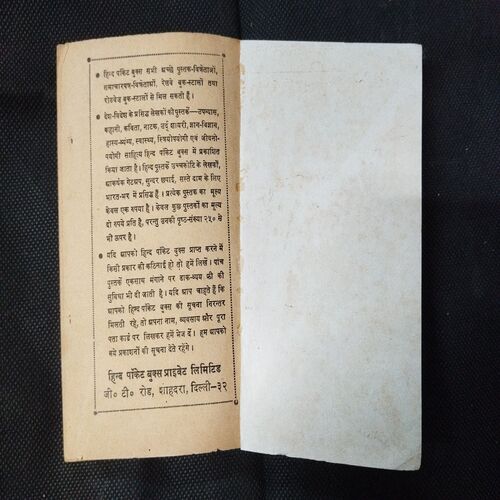 ● हिन्द पॉकेट बुक्स सभी अच्छे पुस्तक-विक्रेताओं,
समाचारपत्र-विक्रेताओं, रेलवे बुक-स्टालों तथा
रोडवेज़ बुक-स्टालों से मिल सकती हैं।
● देश-विदेश के प्रसिद्ध लेखकों की पुस्तकें—उपन्यास,
कहानी, कविता, नाटक, उर्दू शायरी, ज्ञान-विज्ञान,
हास्य-व्यंग्य, स्वास्थ्य, स्त्रियोपयोगी एवं जीवनो-
पयोगी साहित्य हिन्द पॉकेट बुक्स में प्रकाशित
किया जाता है। हिन्द पुस्तकें उच्चकोटि के लेखकों,
आकर्षक गेटअप, सुन्दर छपाई, सस्ते दाम के लिए
भारत-भर में प्रसिद्ध हैं। प्रत्येक पुस्तक का मूल्य
केवल एक रुपया है। केवल कुछ पुस्तकों का मूल्य
दो रुपये प्रति है, परन्तु उनकी पृष्ठ-संख्या २५० से
भी ऊपर है।
● यदि आपको हिन्द पॉकेट बुक्स प्राप्त करने में
किसी प्रकार की कठिनाई हो तो हमें लिखें। पांच
पुस्तकें एकसाथ मंगाने पर डाक-व्यय फ्री की
सुविधा भी दी जाती है। यदि आप चाहते हैं कि
आपको हिन्द पॉकेट बुक्स की सूचना निरन्तर
मिलती रहे, तो अपना नाम, व्यवसाय और पूरा
पता कार्ड पर लिखकर हमें भेज दें। हम आपको
नये प्रकाशनों की सूचना देते रहेंगे।
हिन्द पॉकेट बुक्स प्राइवेट लिमिटेड
जी० टी० रोड, शाहदरा, दिल्ली-३२